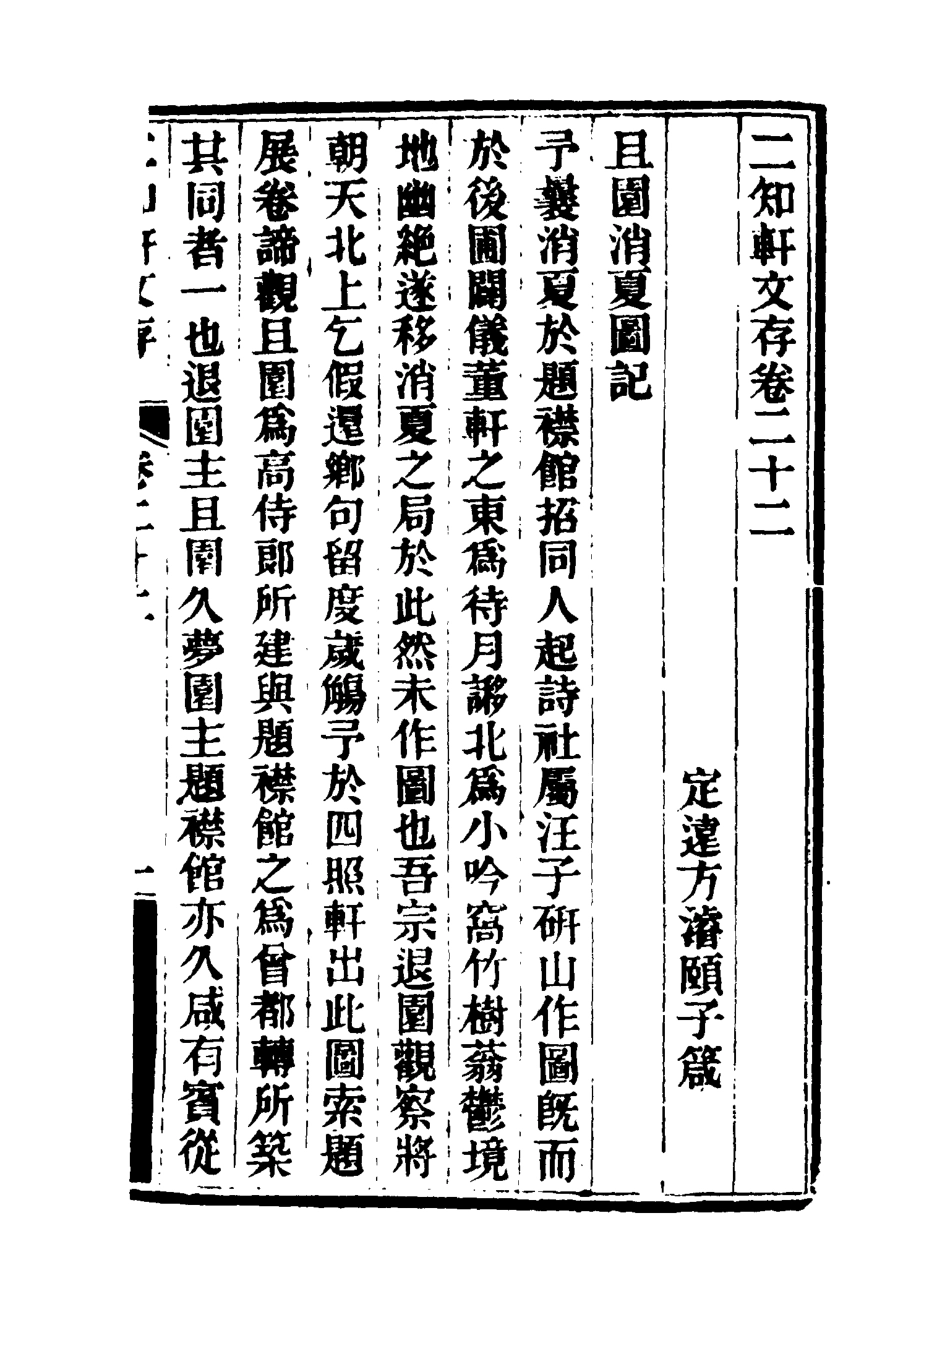 二知軒文存卷二十二
定遠方濬頤子箴
且園消夏圖記
予曩消夏於題襟館招同人起詩社屬汪子硏山作圖旣而
於後圃闢儀董軒之東爲待月簃北爲小吟窩竹樹蓊鬱境
地幽絶遂移消夏之局於此然未作圖也吾宗退園觀察將
朝天北上乞假還鄉句留度歲觴予於四照軒出此圖索題
展卷諦觀且園爲高侍郎所建與題襟館之爲曾都轉所築
其同者一也退園主且園久夢園主題襟館亦久咸有賓從
二知軒文存 卷二十二 一